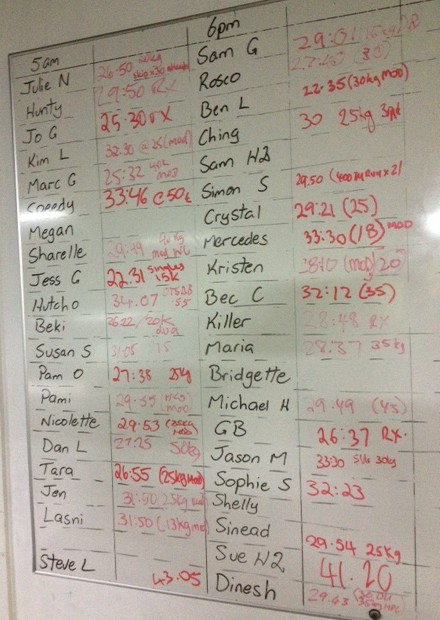 5am
Julie N 26:50
Hunty 29:50 RX
Jo G 25:30 RX
Kim L 32:30 @ 25 (mod)
Marc G 25:32
Speedy 33:46 @50k
Megan
Sharelle 29:49
Jess G 22.31 singles 15k
Hutcho 34.07
Beki 26:22 /20k
Susan S 31:05 15
Pam O 27:38 25kg
Pami 29:59
Nicolette 29:53
Dan L 27:25 50kg
Tara 26:55 (25kg mod)
Jen 31:50 25kg
Lasni 31:50 (13kg mod)
Steve L 43.05
6pm
Sam G 29:01
27:40 (30)
Rosco 22:35 (30kg mod)
Ben L 30 25kg
Ching
Sam H2
Simon S 29.50 (400m run x 2)
Crystal 29:21 (25)
Mercedes 33:30 (18) mod
Kristen 38:10 (mod) 20
Bec C 32:12 (35)
Killer 28:48 RX
Maria 28:37 35kg
Bridgette
Michael H 29:49 (45)
GB 26:37 RX.
Jason M 33:30 30kg
Sophie S 32:23
Shelly
Sinead
Sue H2 29.54 25kg
41.20
Dinesh 29:43